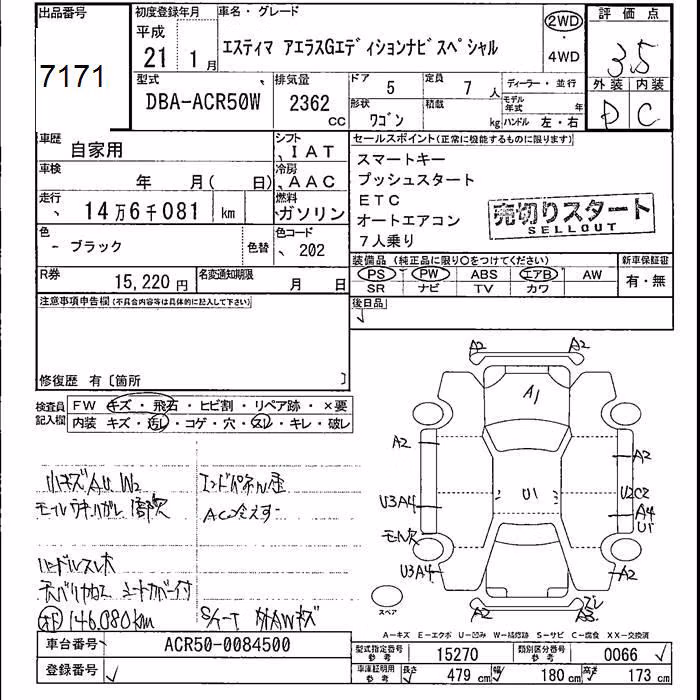 出品番号
7171
初度登録年月
平成
21 1月
車名・グレード
エスティマ アエラスGエディションナビスペシャル
2WD
・
4WD
評価点
3.5
外装 内装
D C
型式
DBA-ACR50W
排気量
2362
cc
ドア
5
定員
7 人
形状
ワゴン
積載
kg
ディーラー・並行
モデル年式 年
ハンドル 左・右
車歴
自家用
シフト
IAT
車検
年 月( 日)
冷房
AAC
走行
14万6千081 km
燃料
ガソリン
色
- ブラック
色替
色コード
202
R券
15,220 円
名変通知期限
月 日
セールスポイント(正常に機能するものに限ります)
スマートキー
プッシュスタート
ETC
オートエアコン
7人乗り
売切りスタート
SELLOUT
装備品 (純正品に限り○をつけてください)
PS PW ABS エアB AW
SR ナビ TV カワ
新車保証書
有・無
後日品
注意事項申告欄(不具合内容等は具体的に記入して下さい)
修復歴 有〔箇所 〕
検査員記入欄
FW キズ・飛石・ヒビ割・リペア跡・×要
内装 キズ・汚レ・コゲ・穴・スレ・キレ・破レ
小キズAU W2
エンドパネル歪
AC冷えず
ハンドルスレ大
シートカバー付
146,080km
A2 A2
A1
A2 A2
U3A4 U1 U2C2
A4
U1
モール欠
U3A4 A2
スペア
A-キズ E-エクボ U-凹み W-補修跡 S-サビ C-腐食 XX-交換済
車台番号
ACR50-0084500
登録番号
型式指定番号 参考
15270
類別区分番号 参考
0066
車庫証明用 参考
長さ 479 cm 幅 180 cm 高さ 173 cm